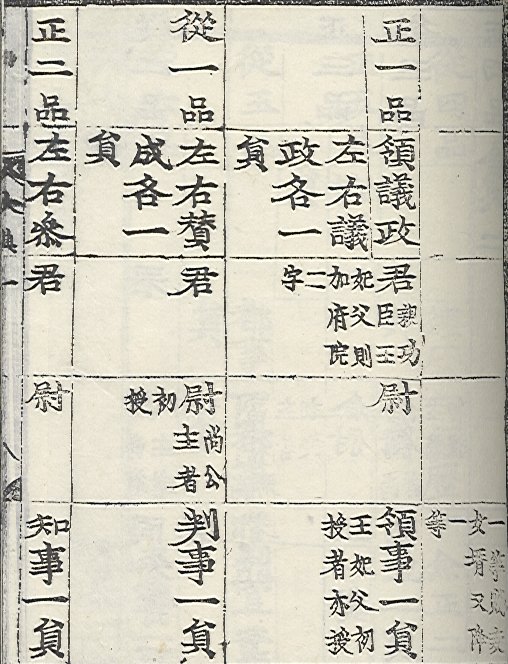 一等
女壻又降
一等
正一品
領議政
左右議
政各一
貟
君
親功
臣王
妃父則
加府院
二
字
尉
領事一貟
王妃父初
授者亦授
從一品
左右贊
成各一
貟
君
尉
尚公
主者
初
授
判事一貟
正二品
左右叅
君
尉
知事一貟